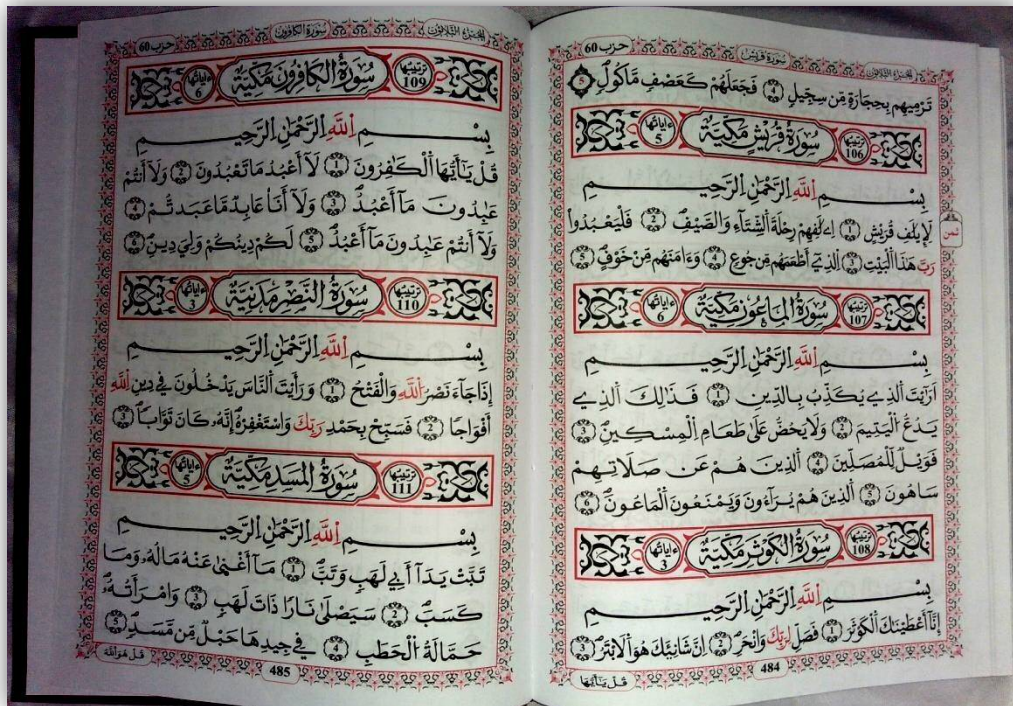 الجزء الثلاثون
سورة قريش
حزب 60
تَرْمِيهِم بِحِجَارَةٍ مِّن سِجِّيلٍ 4 فَجَعَلَهُمْ كَعَصْفٍ مَّاكُولٍ 5
ترتيبها 106 سُورَةُ قُرَيْشٍ مَكِّيَّةٌ ءاياتها 5
بِسْمِ اِللَّهِ اِلرَّحْمَٰنِ اِلرَّحِيمِ
لِإِيلَٰفِ قُرَيْشٍ 1 إِۦلَٰفِهِمْ رِحْلَةَ اَلشِّتَآءِ وَالصَّيْفِ 2 فَلْيَعْبُدُواْ
ثمن
رَبَّ هَٰذَا اَلْبَيْتِ 3 اِلذِےٓ أَطْعَمَهُم مِّن جُوعٍ 4 وَءَامَنَهُم مِّنْ خَوْفٍ 5
ترتيبها 107 سُورَةُ الْمَاعُونِ مَكِّيَّةٌ ءاياتها 6
بِسْمِ اِللَّهِ اِلرَّحْمَٰنِ اِلرَّحِيمِ
أَرَٰيْتَ اَلذِے يُكَذِّبُ بِالدِّينِ 1 فَذَٰلِكَ اَلذِے
يَدُعُّ اُلْيَتِيمَ 2 وَلَا يَحُضُّ عَلَىٰ طَعَامِ اِلْمِسْكِينِ 3
فَوَيْلٌ لِّلْمُصَلِّينَ 4 اَلذِينَ هُمْ عَن صَلَاتِهِمْ
سَاهُونَ 5 اَلذِينَ هُمْ يُرَآءُونَ وَيَمْنَعُونَ اَلْمَاعُونَ 6
ترتيبها 108 سُورَةُ الْكَوْثَرِ مَكِّيَّةٌ ءاياتها 3
بِسْمِ اِللَّهِ اِلرَّحْمَٰنِ اِلرَّحِيمِ
إِنَّآ أَعْطَيْنَٰكَ اَلْكَوْثَرَ 1 فَصَلِّ لِرَبِّكَ وَانْحَرْ 2 إِنَّ شَانِئَكَ هُوَ اَلَابْتَرُ 3
484
قُلْ يَٰٓأَيُّهَا
الجزء الثلاثون
سورة الكافرون
حزب 60
ترتيبها 109 سُورَةُ الْكَافِرُونَ مَكِّيَّةٌ ءاياتها 6
بِسْمِ اِللَّهِ اِلرَّحْمَٰنِ اِلرَّحِيمِ
قُلْ يَٰٓأَيُّهَا اَلْكَٰفِرُونَ 1 لَآ أَعْبُدُ مَا تَعْبُدُونَ 2 وَلَآ أَنتُمْ
عَٰبِدُونَ مَآ أَعْبُدُ 3 وَلَآ أَنَا عَابِدٌ مَّا عَبَدتُّمْ 4
وَلَآ أَنتُمْ عَٰبِدُونَ مَآ أَعْبُدُ 5 لَكُمْ دِينُكُمْ وَلِيَ دِينِ 6
ترتيبها 110 سُورَةُ النَّصْرِ مَدَنِيَّةٌ ءاياتها 3
بِسْمِ اِللَّهِ اِلرَّحْمَٰنِ اِلرَّحِيمِ
إِذَا جَآءَ نَصْرُ اُللَّهِ وَالْفَتْحُ 1 وَرَأَيْتَ اَلنَّاسَ يَدْخُلُونَ فِي دِينِ اِللَّهِ
أَفْوَاجًا 2 فَسَبِّحْ بِحَمْدِ رَبِّكَ وَاسْتَغْفِرْهُ إِنَّهُۥ كَانَ تَوَّابًا 3
ترتيبها 111 سُورَةُ الْمَسَدِ مَكِّيَّةٌ ءاياتها 5
بِسْمِ اِللَّهِ اِلرَّحْمَٰنِ اِلرَّحِيمِ
تَبَّتْ يَدَآ أَبِے لَهَبٍ وَتَبَّ 1 مَآ أَغْنَىٰ عَنْهُ مَالُهُۥ وَمَا
كَسَبَ 2 سَيَصْلَىٰ نَارًا ذَاتَ لَهَبٍ 3 وَامْرَأَتُهُۥ
حَمَّالَةُ اُلْحَطَبِ 4 فِے جِيدِهَا حَبْلٌ مِّن مَّسَدٍ 5
485
قُلْ هُوَ اَللَّهُ